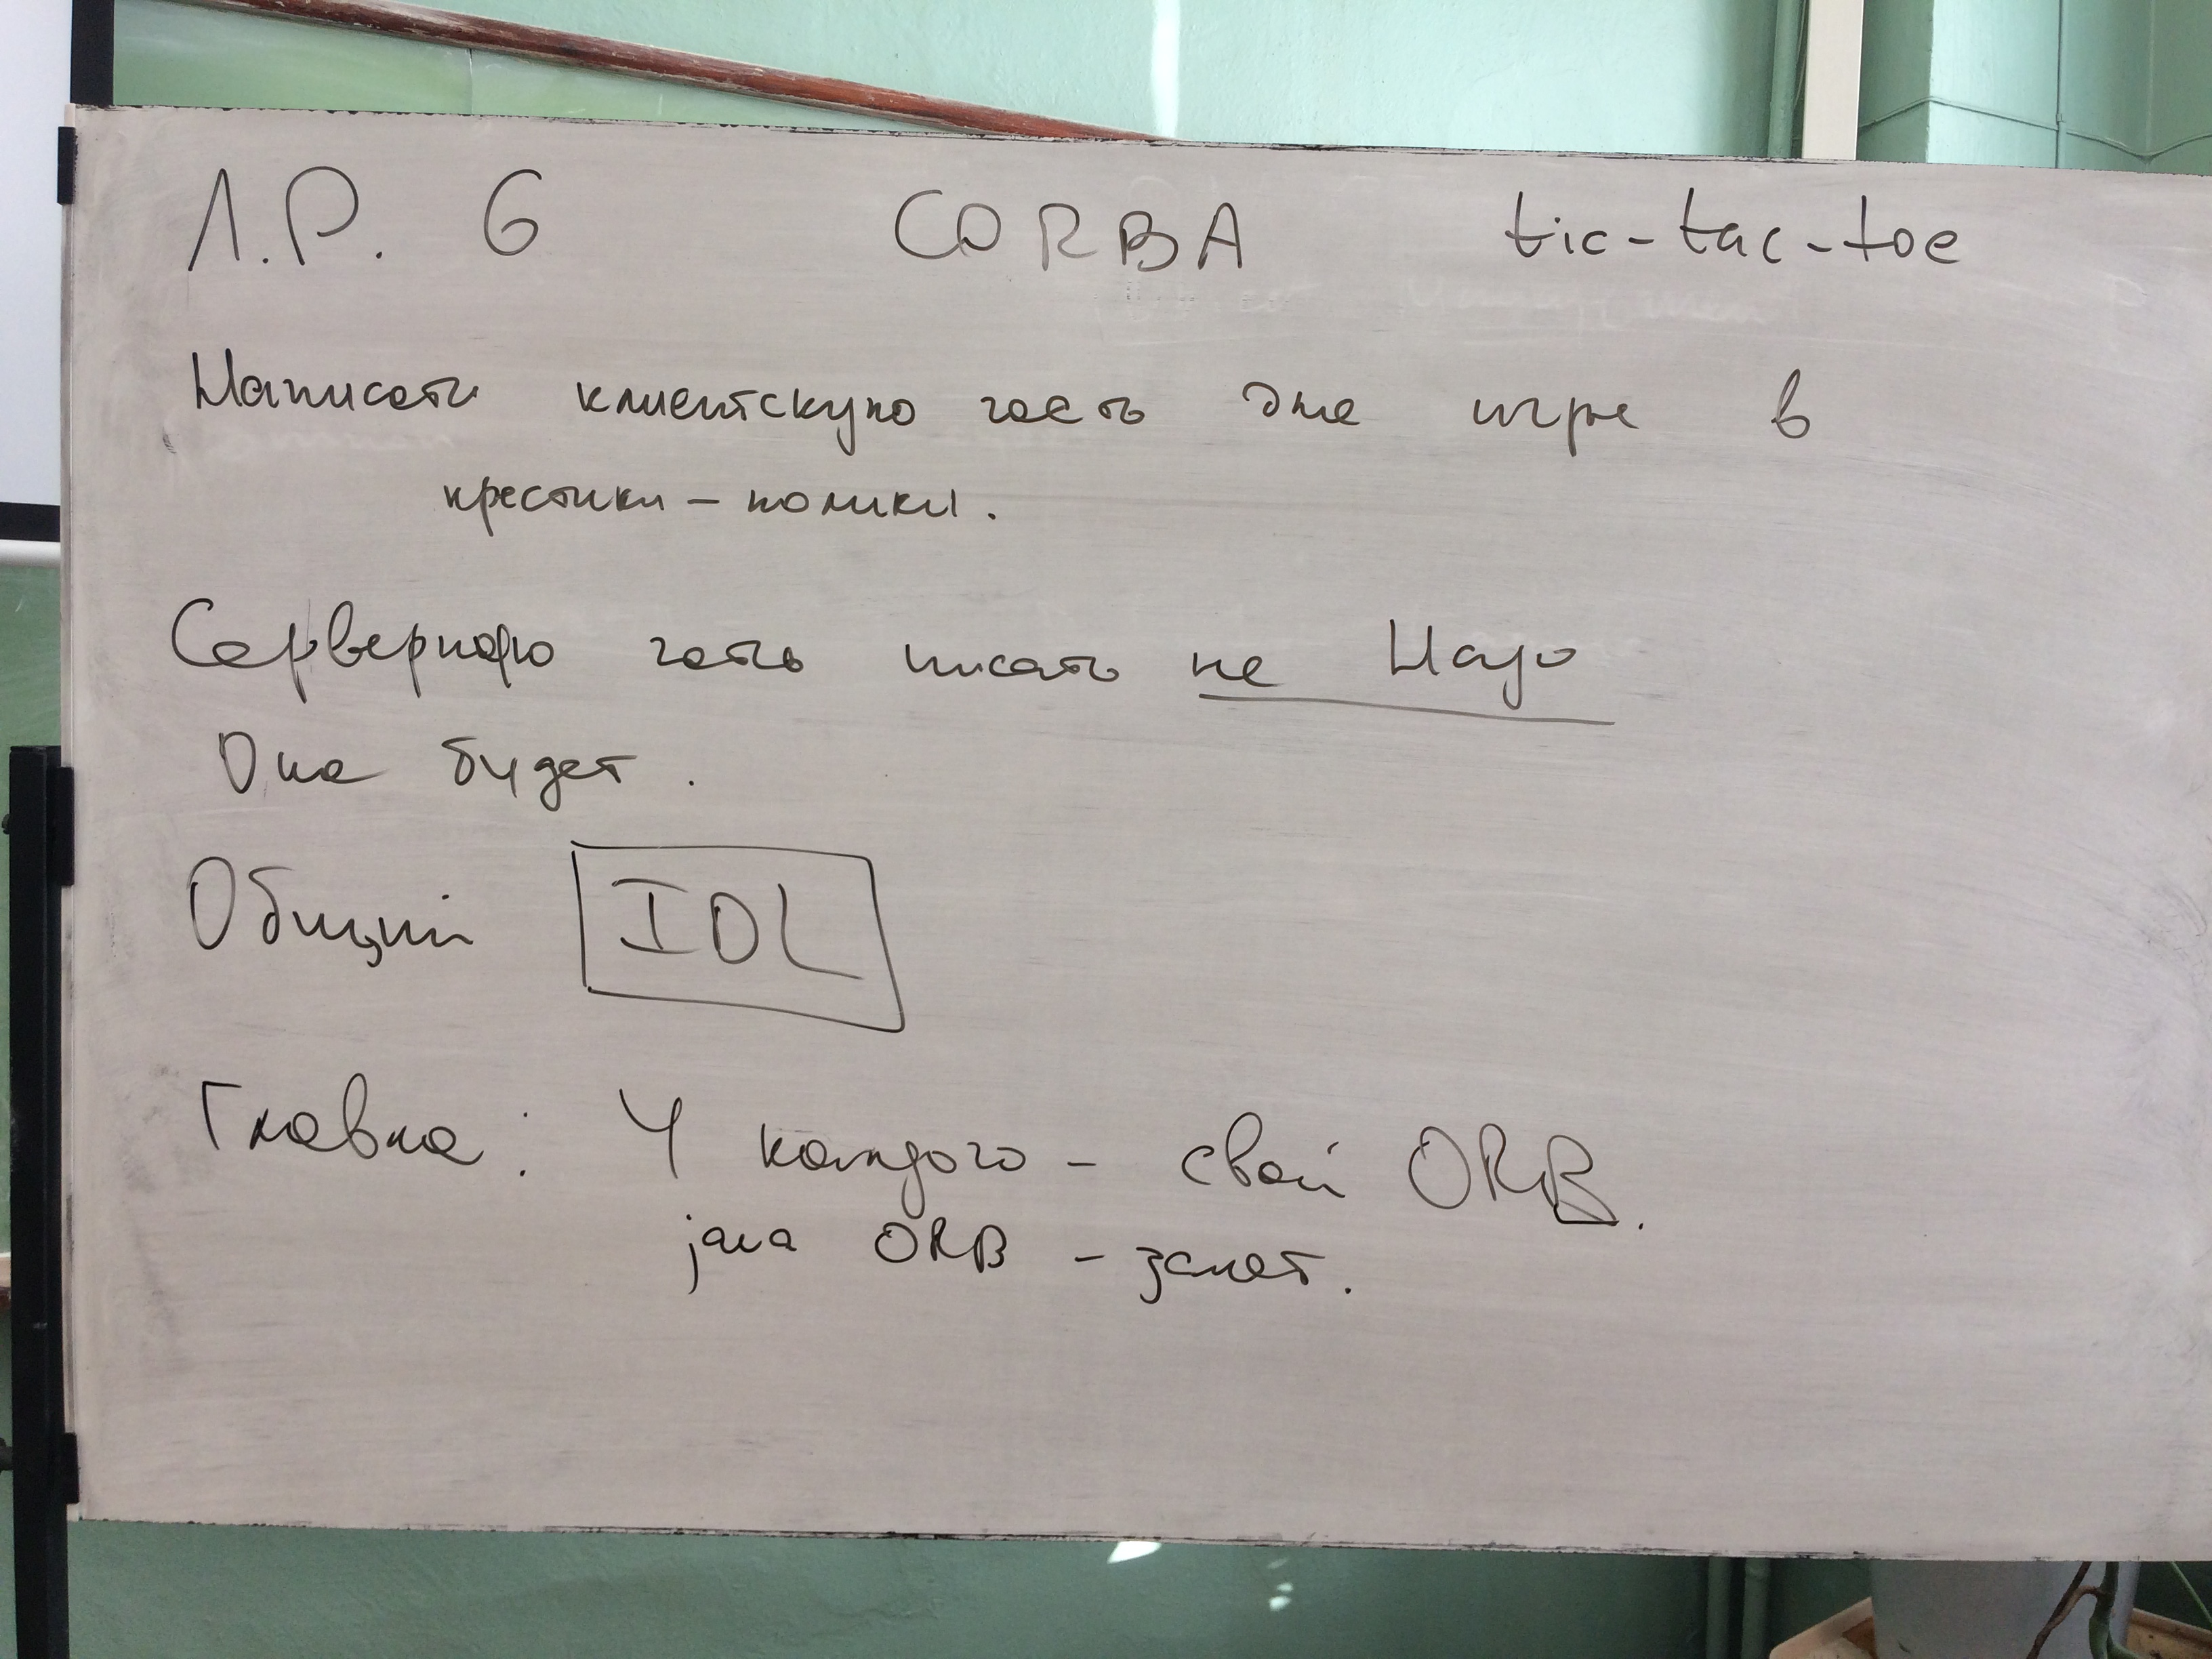 Л.Р. 6 CORBA tic-tac-toe
Написать клиентскую часть для игры в
крестики - нолики.
Серверную часть писать не надо
Она будет.
Общий IDL
Главна: У каждого - свой ORB.
java ORB - зачет.